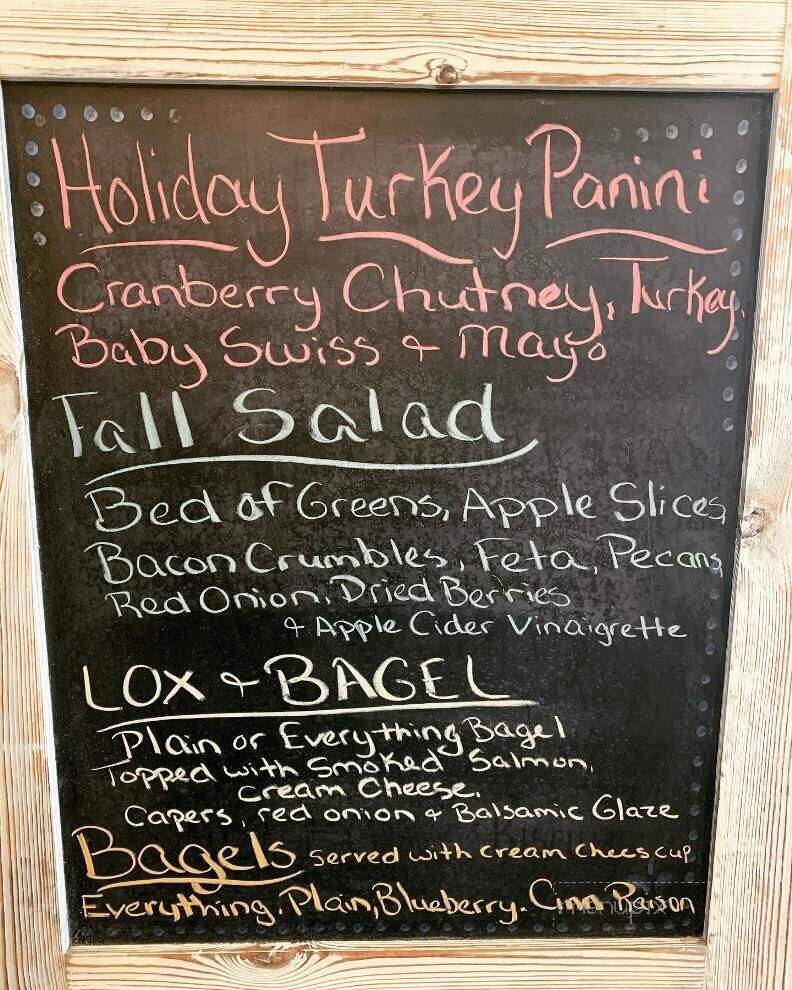 Holiday Turkey Panini
Cranberry Chutney, Turkey,
Baby Swiss & Mayo
Fall Salad
Bed of Greens, Apple Slices,
Bacon Crumbles, Feta, Pecans,
Red Onion, Dried Berries
& Apple Cider Vinaigrette
LOX & BAGEL
Plain or Everything Bagel
Topped with Smoked Salmon,
Cream Cheese,
Capers, red onion & Balsamic Glaze
Bagels served with cream chees cup
Everything, Plain, Blueberry, Cinn Raison
menupix